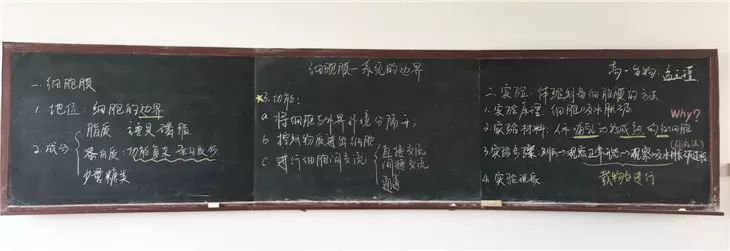 细胞膜—系统的边界
一.细胞膜
1. 地位:细胞的边界
2. 成分
脂质 主要是磷脂
蛋白质:功能复杂 蛋白质多
少量糖类
3. 功能:
a 将细胞与外界环境分隔开;
b 控制物质进出细胞
c 进行细胞间交流
直接交流
间接交流
通道
高一生物
二. 实验:体验制备细胞膜的方法
1. 实验原理:细胞吸水胀破
Why?
2. 实验材料:人、哺乳动物成熟的红细胞
3. 实验步骤 观察正常细胞→观察吸水
4. 实验现象
载物台进行